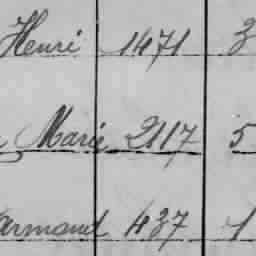 Henri 1471 3
Marie 2117 5
Armand 437 1